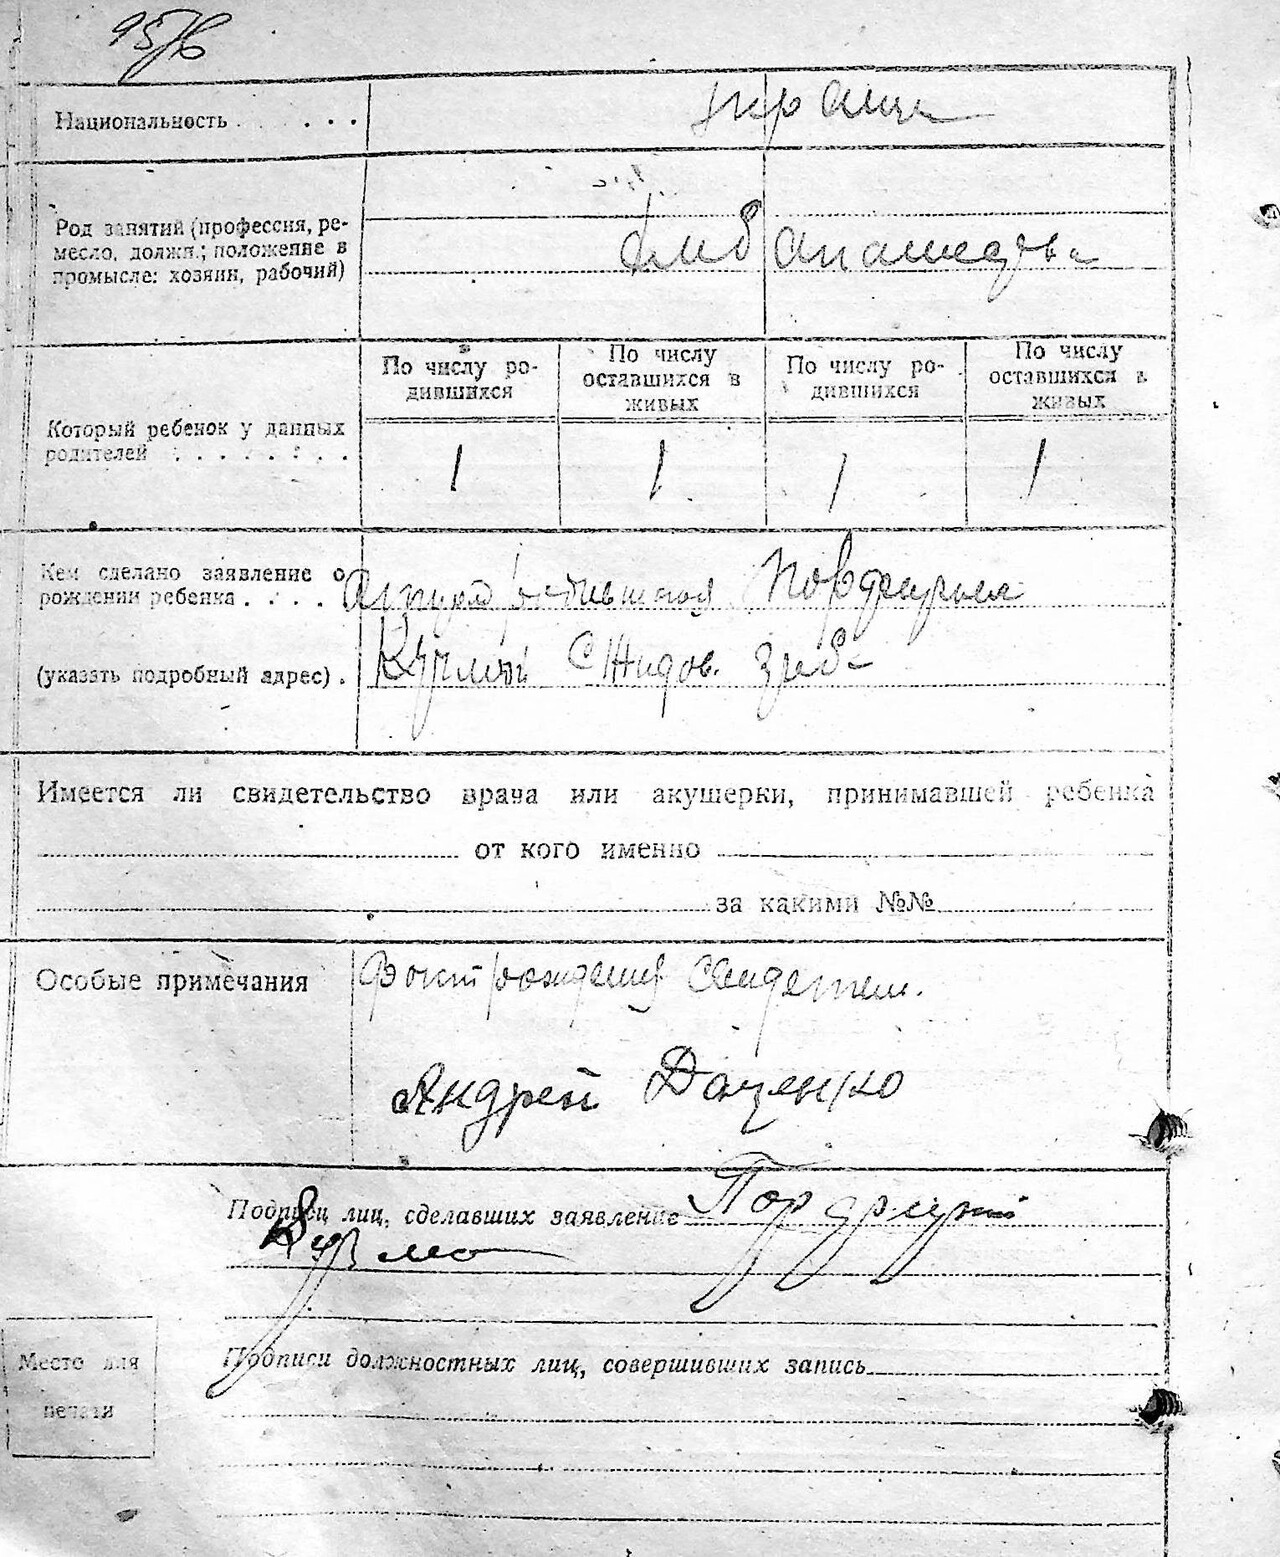 95/6
Национальность . . . . . .
Род занятий (профессия, ре-
месло, должн.; положение в
промысле: хозяин, рабочий)
По числу ро-
дившихся
По числу
оставшихся в
живых
По числу ро-
дившихся
По числу
оставшихся в
живых
Который ребенок у данных
родителей . . . . . . . .
1 1 1 1
Кем сделано заявление о
рождении ребенка . . . . Порфирием
(указать подробный адрес) .
Имеется ли свидетельство врача или акушерки, принимавшей ребенка
от кого именно
за какими №№
Особые примечания
Факт рождения Свидетели.
Андрей Даценко
Подписи лиц, сделавших заявление Порфирий
Место для
печати
Подписи должностных лиц, совершивших запись